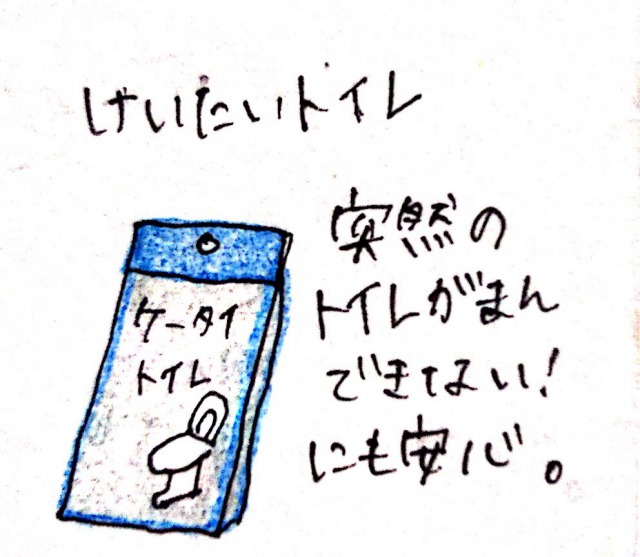 けいたいトイレ
突然の
トイレがまん
できない!
にも安心。
ケータイ
トイレ